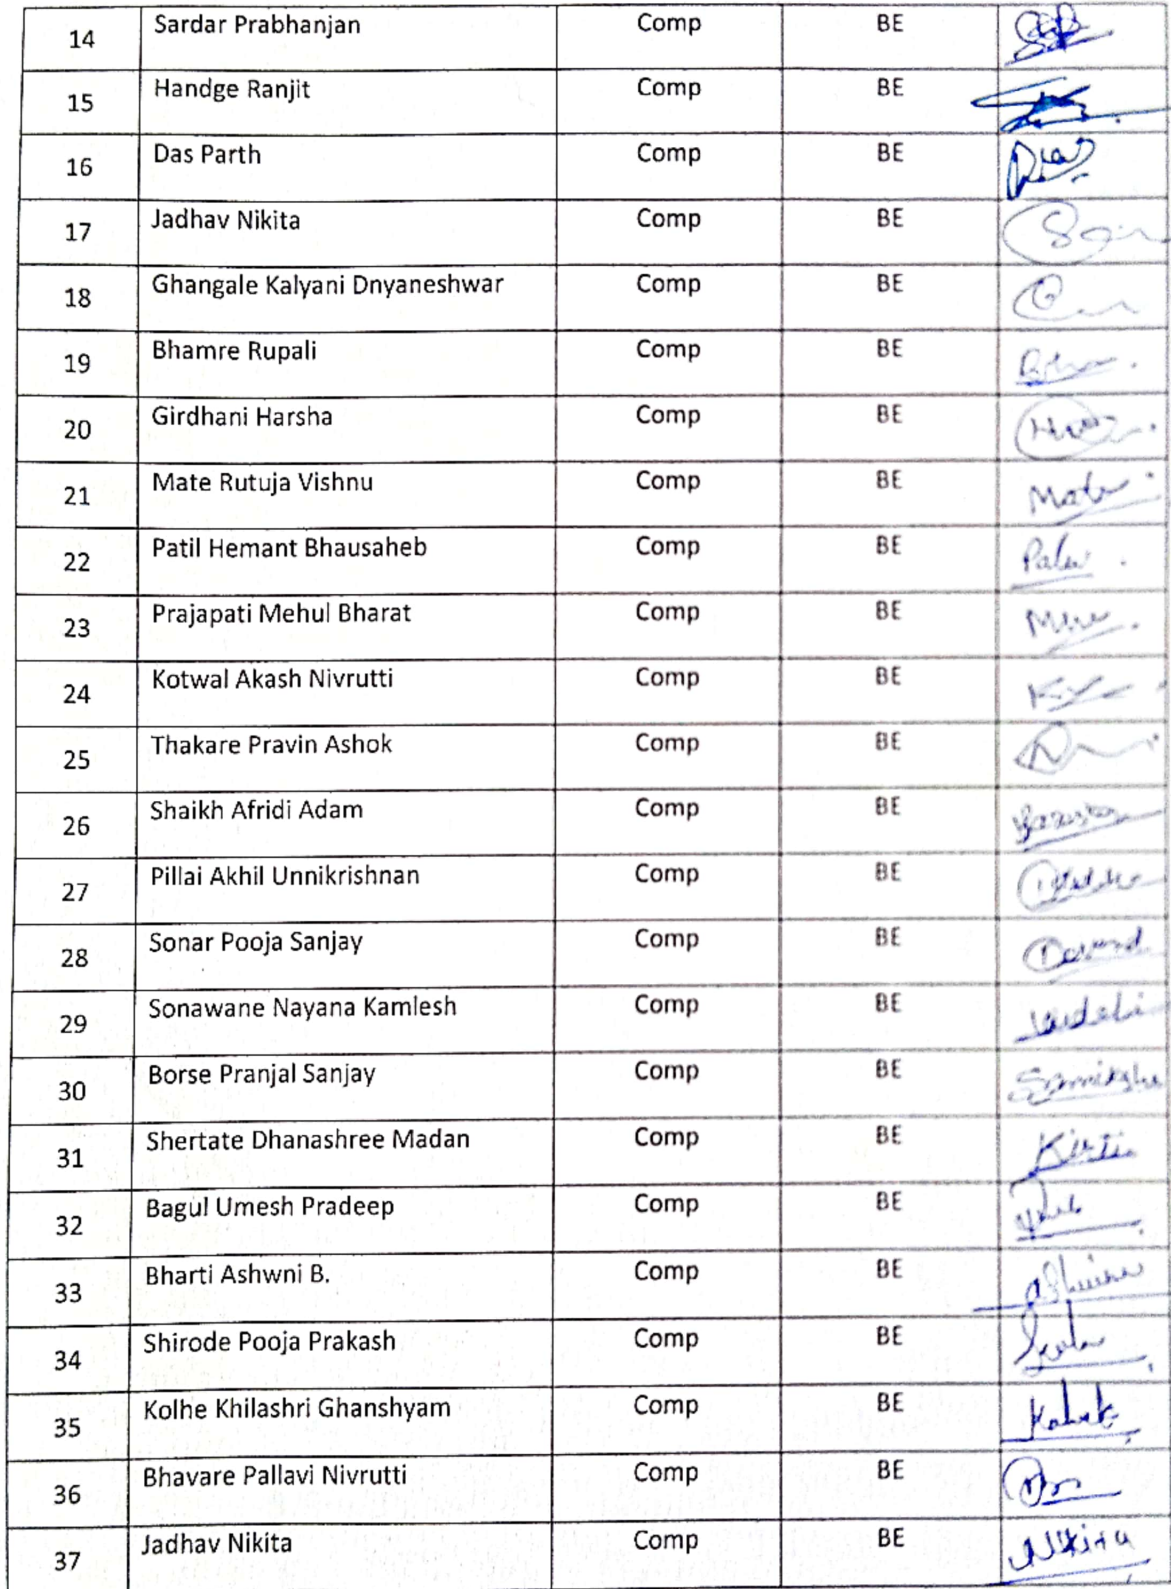 14 Sardar Prabhanjan Comp BE
15 Handge Ranjit Comp BE
16 Das Parth Comp BE
17 Jadhav Nikita Comp BE
18 Ghangale Kalyani Dnyaneshwar Comp BE
19 Bhamre Rupali Comp BE
20 Girdhani Harsha Comp BE
21 Mate Rutuja Vishnu Comp BE
22 Patil Hemant Bhausaheb Comp BE
23 Prajapati Mehul Bharat Comp BE
24 Kotwal Akash Nivrutti Comp BE
25 Thakare Pravin Ashok Comp BE
26 Shaikh Afridi Adam Comp BE
27 Pillai Akhil Unnikrishnan Comp BE
28 Sonar Pooja Sanjay Comp BE
29 Sonawane Nayana Kamlesh Comp BE
30 Borse Pranjal Sanjay Comp BE
31 Shertate Dhanashree Madan Comp BE Kirti
32 Bagul Umesh Pradeep Comp BE
33 Bharti Ashwni B. Comp BE
34 Shirode Pooja Prakash Comp BE
35 Kolhe Khilashri Ghanshyam Comp BE
36 Bhavare Pallavi Nivrutti Comp BE
37 Jadhav Nikita Comp BE Nikita